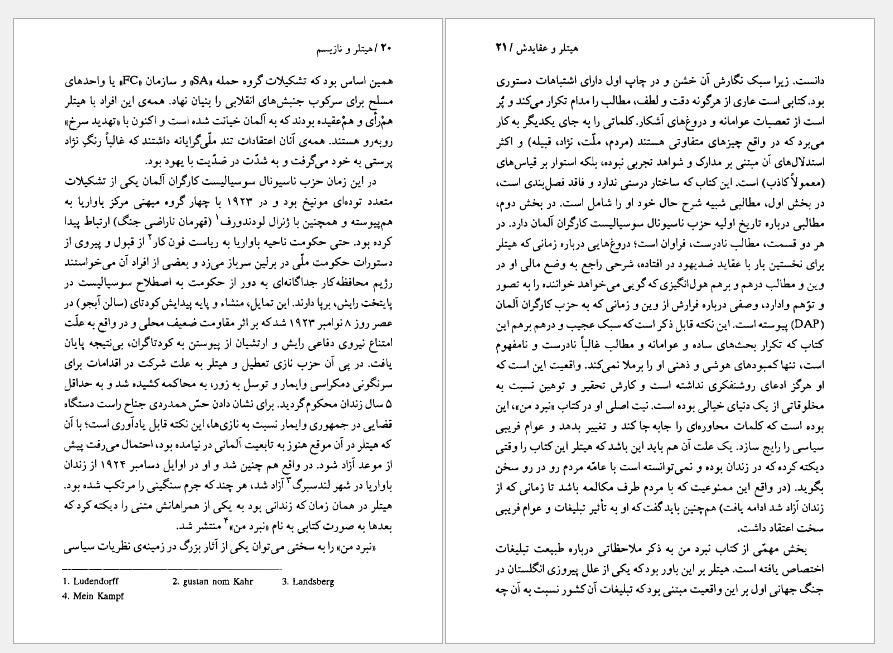 ۲۰ / هیتلر و نازیسم
همین اساس بود که تشکیلات گروه حمله «SA» و سازمان «FC» یا واحدهای
مسلح برای سرکوب جنبش‌های انقلابی را بنیان نهاد. همه‌ی این افراد با هیتلر
هم‌رأی و هم‌عقیده بودند که به آلمان خیانت شده است و اکنون با «تهدید سرخ»
روبه‌رو هستند. همه‌ی آنان اعتقادات تند ملّی‌گرایانه داشتند که غالباً رنگِ نژاد
پرستی به خود می‌گرفت و به شدّت در ضدّیت با یهود بود.
در این زمان حزب ناسیونال سوسیالیست کارگران آلمان یکی از تشکیلات
متعدد توده‌ای مونیخ بود و در ۱۹۲۳ با چهار گروه میهنی مرکز باواریا به
هم‌پیوسته و همچنین با ژنرال لودندورف۱ (قهرمان ناراضی جنگ) ارتباط پیدا
کرده بود. حتی حکومت ناحیه باواریا به ریاست فون کار۲ از قبول و پیروی از
دستورات حکومت ملّی در برلین سرباز می‌زد و بعضی از افراد آن می‌خواستند
رژیم محافظه‌کار جداگانه‌ای به دور از حکومت به اصطلاح سوسیالیست در
پایتخت رایش، برپا دارند. این تمایل، منشاء و پایه پیدایش کودتای (سالن آبجو) در
عصر روز ۸ نوامبر ۱۹۲۳ شد که بر اثر مقاومت ضعیف محلی و در واقع به علّت
امتناع نیروی دفاعی رایش و ارتشیان از پیوستن به کودتاگران، بی‌نتیجه پایان
یافت. در پی آن حزب نازی تعطیل و هیتلر به علت شرکت در اقدامات برای
سرنگونی دمکراسی وایمار و توسل به زور، به محاکمه کشیده شد و به حداقل
۵ سال زندان محکوم گردید. برای نشان دادن حسّ همدردی جناح راست دستگاه
قضایی در جمهوری وایمار نسبت به نازی‌ها، این نکته قابل یادآوری است؛ با آن
که هیتلر در آن موقع هنوز به تابعیت آلمانی در نیامده بود، احتمال می‌رفت پیش
از موعد آزاد شود. در واقع هم چنین شد و او در اوایل دسامبر ۱۹۲۴ از زندان
باواریا در شهر لندسبرگ۳ آزاد شد، هر چند که جرم سنگینی را مرتکب شده بود.
هیتلر در همان زمان که زندانی بود به یکی از همراهانش متنی را دیکته کرد که
بعدها به صورت کتابی به نام «نبرد من»۴ منتشر شد.
«نبرد من» را به سختی می‌توان یکی از آثار بزرگ در زمینه‌ی نظریات سیاسی
1. Ludendorff 2. gustan nom Kahr 3. Landsberg
4. Mein Kampf
هیتلر و عقایدش / ۲۱
دانست. زیرا سبک نگارش آن خشن و در چاپ اول دارای اشتباهات دستوری
بود. کتابی است عاری از هرگونه دقت و لطف، مطالب را مدام تکرار می‌کند و پُر
است از تعصبات عوامانه و دروغ‌های آشکار. کلماتی را به جای یکدیگر به کار
می‌برد که در واقع چیزهای متفاوتی هستند (مردم، ملّت، نژاد، قبیله) و اکثر
استدلال‌های آن مبتنی بر مدارک و شواهد تجربی نبوده، بلکه استوار بر قیاس‌های
(معمولاً کاذب) است. این کتاب که ساختار درستی ندارد و فاقد فصل‌بندی است،
در بخش اول، مطالبی شبیه شرح حال خود او را شامل است. در بخش دوم،
مطالبی درباره تاریخ اولیه حزب ناسیونال سوسیالیست کارگران آلمان دارد. در
هر دو قسمت، مطالب نادرست، فراوان است؛ دروغ‌هایی درباره زمانی که هیتلر
برای نخستین بار با عقاید ضدیهود در افتاده، شرحی راجع به وضع مالی او در
وین و مطالب درهم و برهم هول‌انگیزی که گویی می‌خواهد خواننده را به تصور
و توّهم وادارد، وصفی درباره فرارش از وین و زمانی که به حزب کارگران آلمان
(DAP) پیوسته است. این نکته قابل ذکر است که سبک عجیب و درهم برهم این
کتاب که تکرار بحث‌های ساده و عوامانه و مطالب غالباً نادرست و نامفهوم
است، تنها کمبودهای هوشی و ذهنی او را برملا نمی‌کند. واقعیت این است که
او هرگز ادعای روشنفکری نداشته است و کارش تحقیر و توهین نسبت به
مخلوقاتی از یک دنیای خیالی بوده است. نیت اصلی او در کتاب «نبرد من»، این
بوده است که کلمات محاوره‌ای را جابه‌جا کند و تغییر بدهد و عوام فریبی
سیاسی را رایج سازد. یک علت آن هم باید این باشد که هیتلر این کتاب را وقتی
دیکته کرده که در زندان بوده و نمی‌توانسته است با عامّه مردم رو در رو سخن
بگوید. (در واقع این ممنوعیت که با مردم طرف مکالمه باشد تا زمانی که از
زندان آزاد شد ادامه یافت) هم‌چنین باید گفت که او به تأثیر تبلیغات و عوام فریبی
سخت اعتقاد داشت.
بخش مهمّی از کتاب نبرد من به ذکر ملاحظاتی درباره طبیعت تبلیغات
اختصاص یافته است. هیتلر بر این باور بود که یکی از علل پیروزی انگلستان در
جنگ جهانی اول بر این واقعیت مبتنی بود که تبلیغات آن کشور نسبت به آن چه